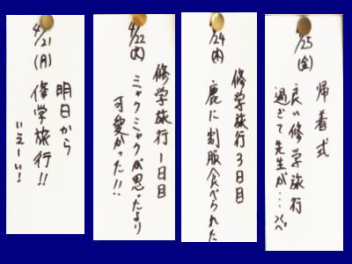 4/21(月)
明日から
修学旅行!!
いえーい!
4/22(火)
修学旅行1日目
ミャクミャクが思ったより
可愛かった!!
4/24(木)
修学旅行3日目
鹿に制服食べられた
4/25(金)
帰着式
良い修学旅行
過ぎて先生が…